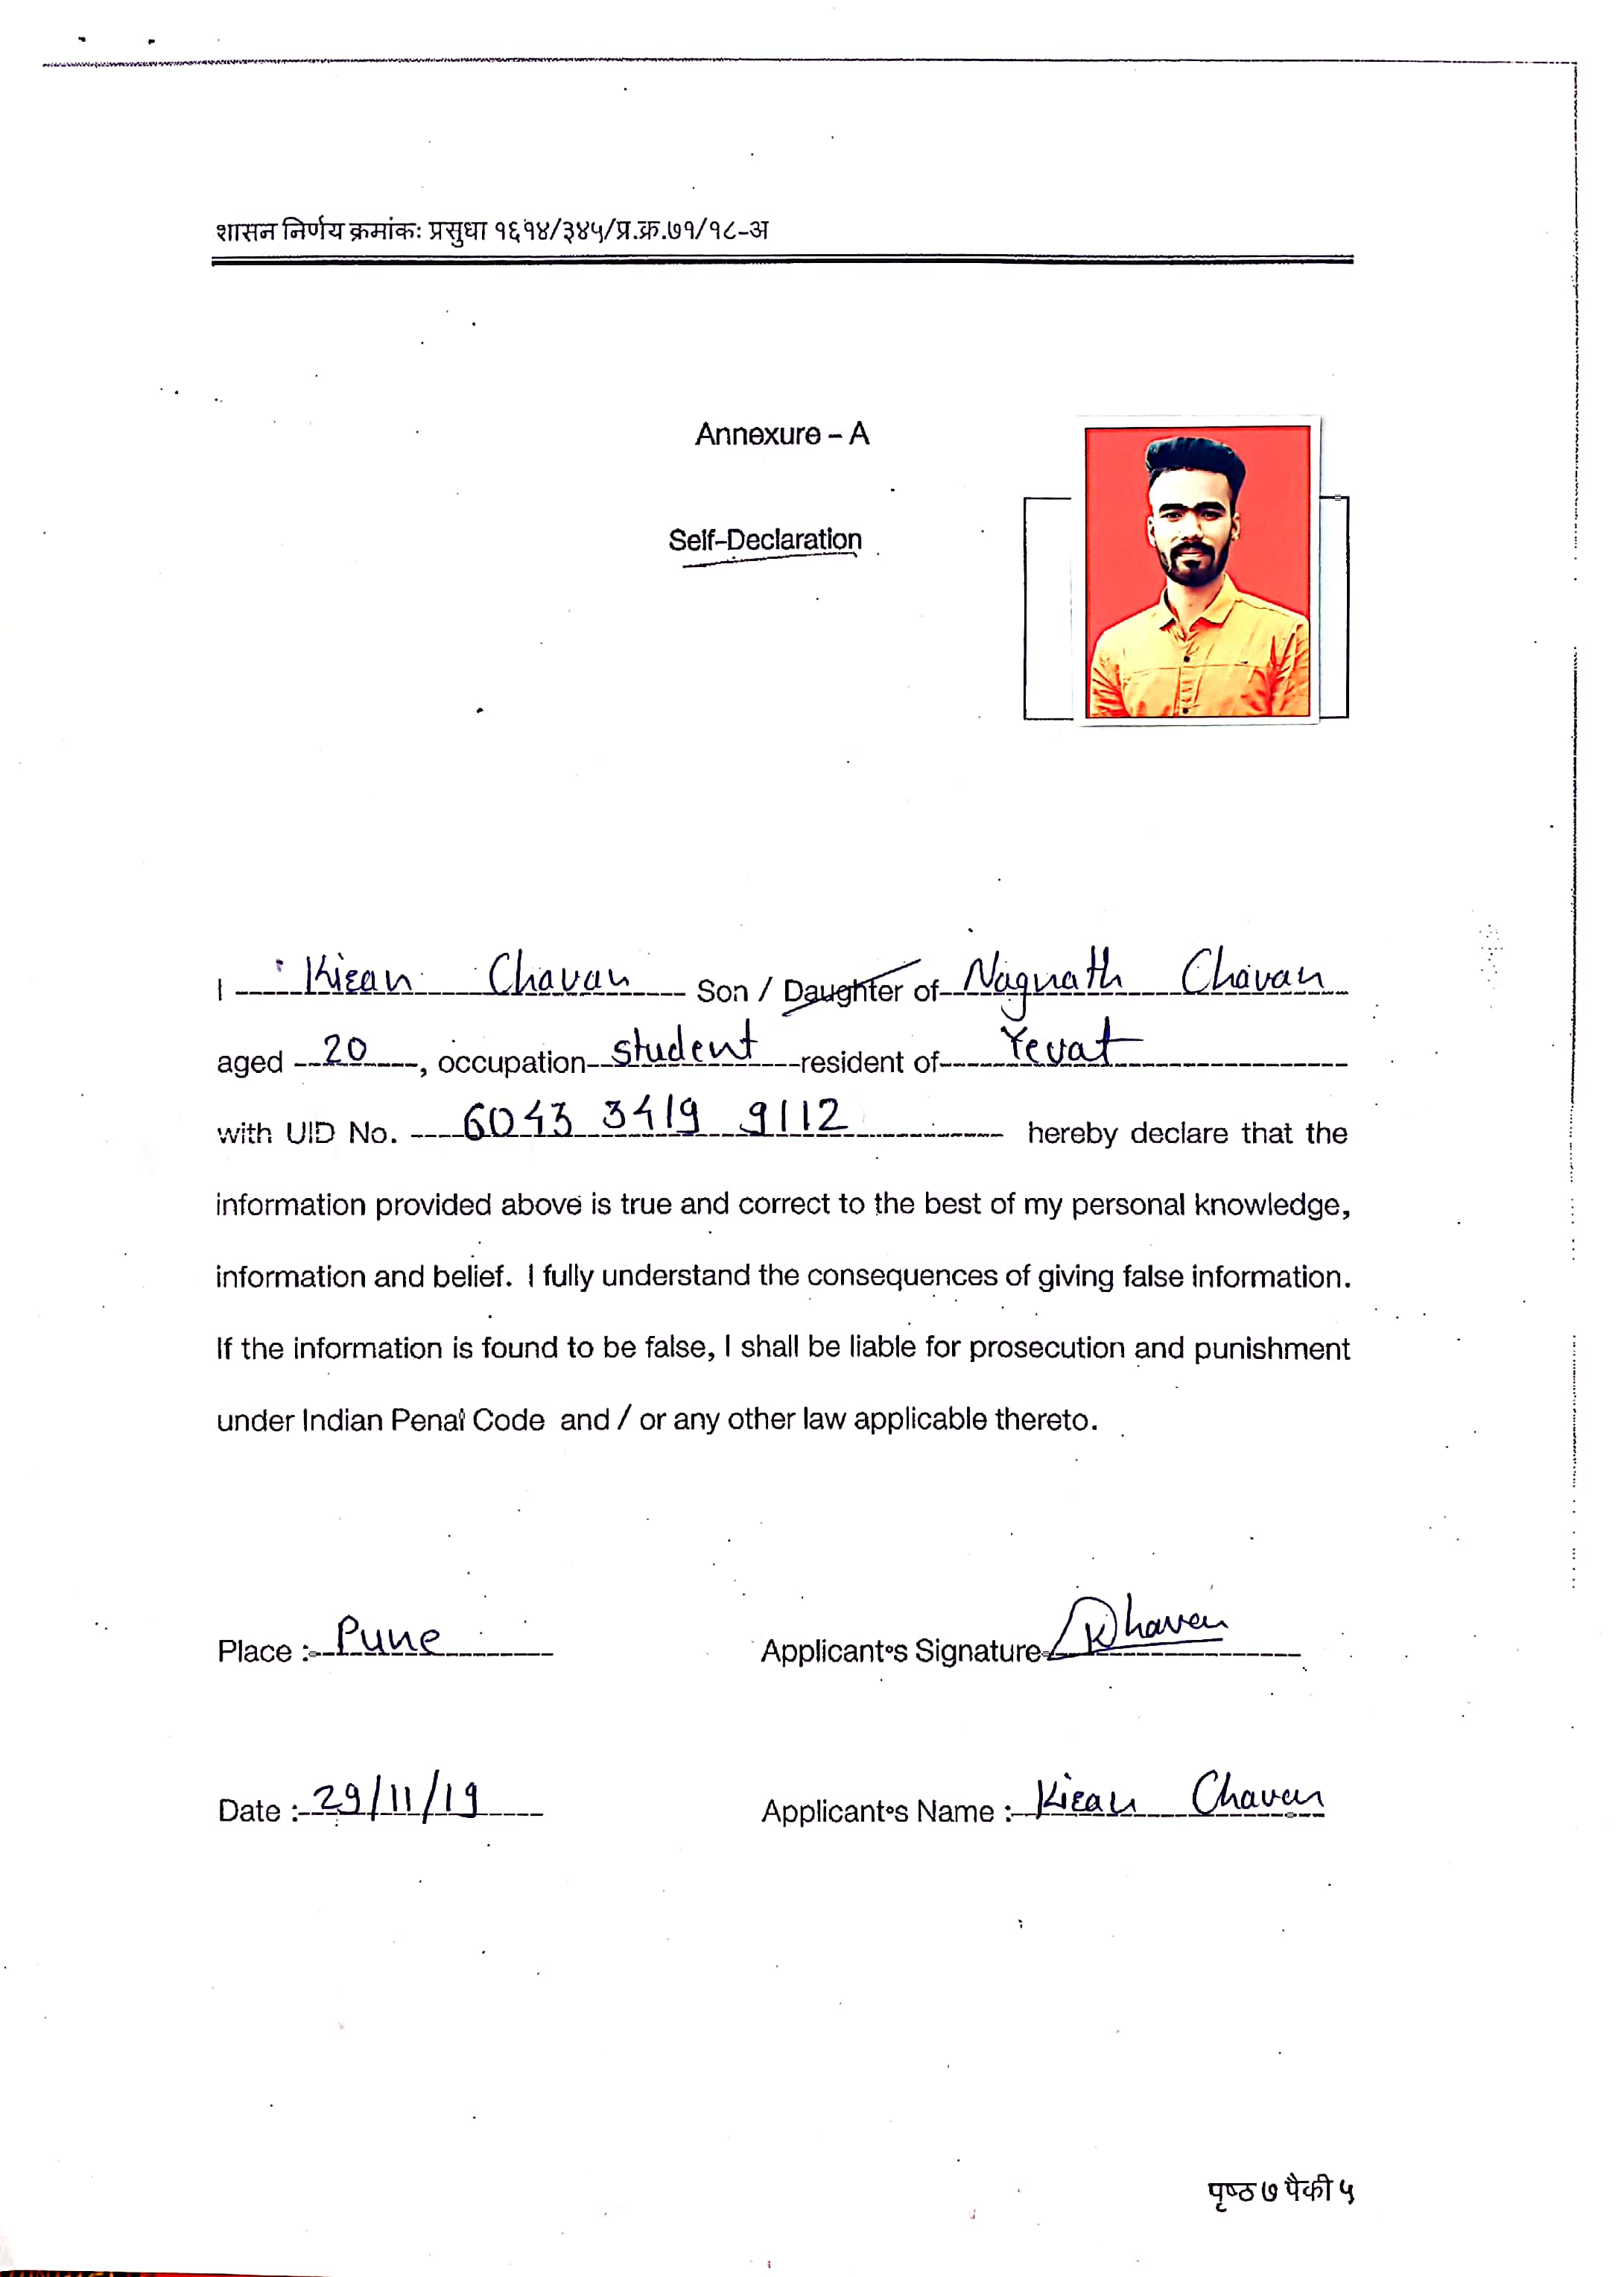 शासन निर्णय क्रमांकः प्रसुधा १६१४/३४५/प्र.क्र.७१/१८-अ
Annexure – A
Self-Declaration
I Kiran Chavan Son / Daughter of Nagnath Chavan
aged 20, occupation student resident of Yevat
with UID No. 6043 3419 9112 hereby declare that the
information provided above is true and correct to the best of my personal knowledge,
information and belief. I fully understand the consequences of giving false information.
If the information is found to be false, I shall be liable for prosecution and punishment
under Indian Penal Code and / or any other law applicable thereto.
Place :- Pune Applicant's Signature- KChavan
Date :- 29/11/19 Applicant's Name :- Kiran Chavan
पृष्ठ ७ पैकी ५